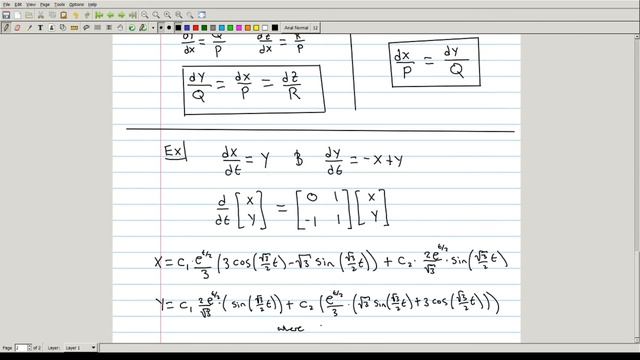 File Edit View Page Tools Options Help
Arial Normal 12
dy/dx = Q/P dz/dx = R/P
dy/Q = dx/P = dz/R
dx/P = dy/Q
Ex
dx/dt = y & dy/dt = -x+y
d/dt [x y] = [0 1 -1 1] [x y]
x = c₁ e^{t/2}/3 (3cos(√3/2 t) - √3 sin(√3/2 t)) + c₂ · 2e^{t/2}/√3 · sin(√3/2 t)
y = c₁ 2e^{t/2}/√3 · (sin(√3/2 t)) + c₂ (e^{t/2}/3 · (√3 sin(√3/2 t) + 3cos(√3/2 t)))
where
Page 2 of 2 Layer: Layer 1